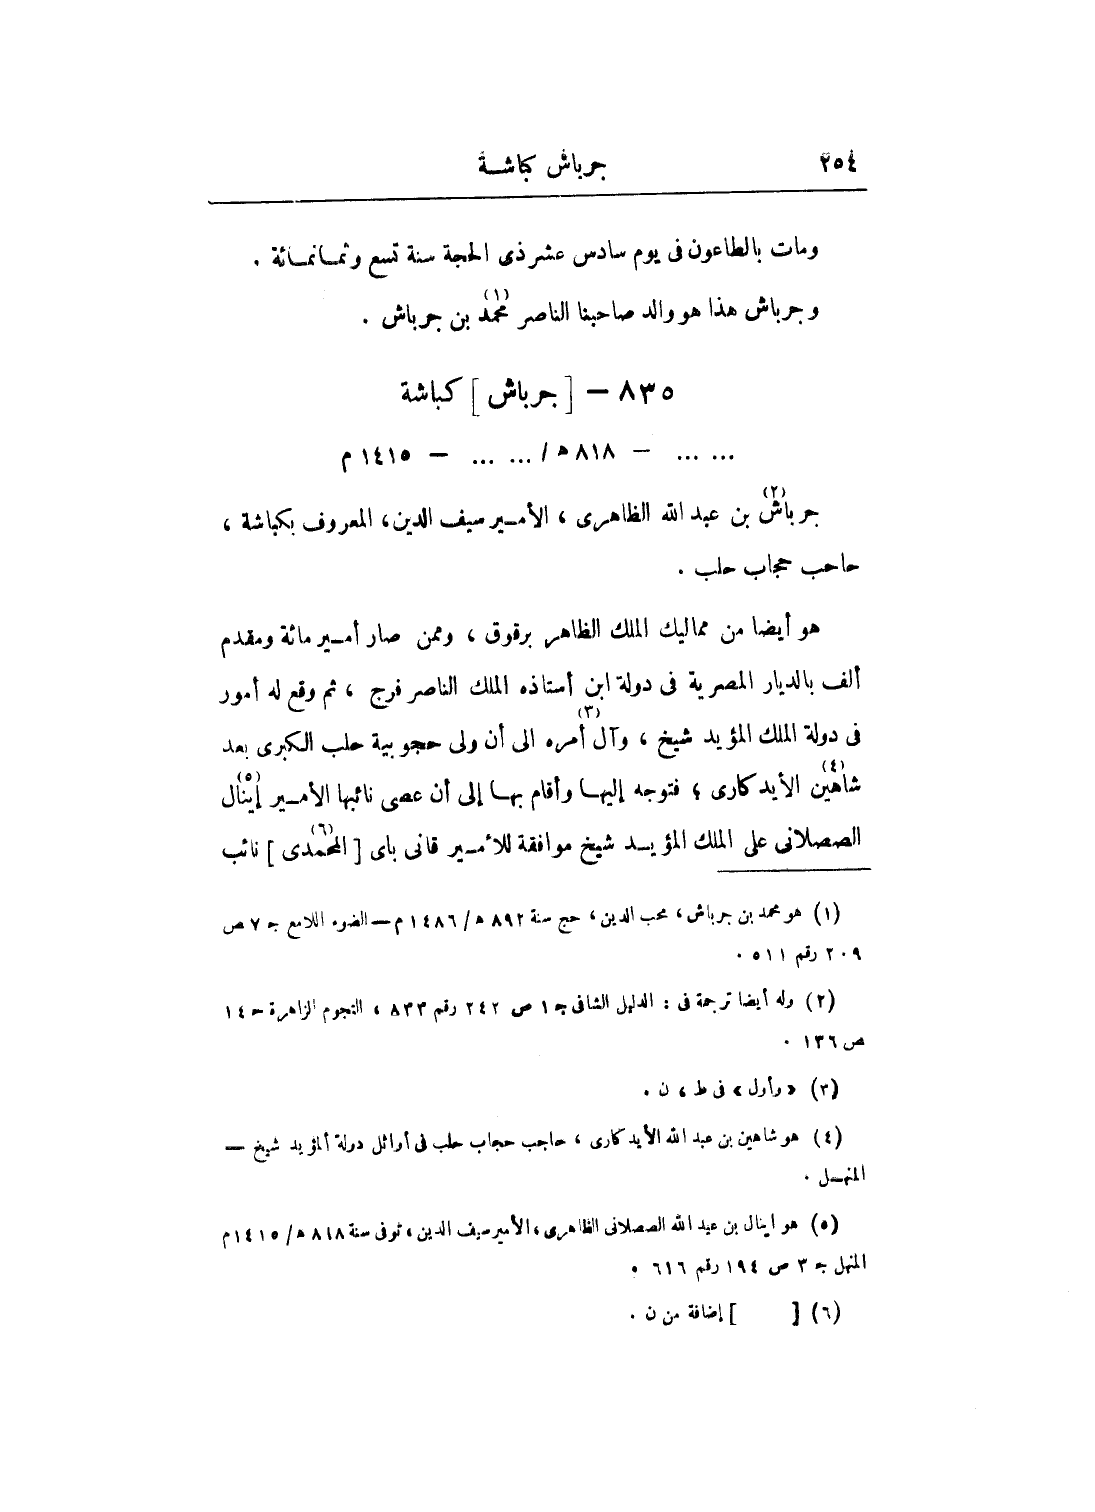 ٢٥٤ جرباش كباشة
ومات بالطاعون فى يوم سادس عشر ذى الحجة سنة تسع وثمانمائة .
وجرباش هذا هو والد صاحبنا الناصر محمد (١) بن جرباش .
٨٣٥ — [ جرباش ] كباشة
... ... — ٨١٨ ه / ... ... — ١٤١٥ م
جرباش (٢) بن عبد الله الظاهرى ، الأمير سيف الدين، المعروف بكباشة ،
حاحب حجاب حلب .
هو أيضا من مماليك الملك الظاهر برقوق ، وممن صار أمير مائة ومقدم
ألف بالديار المصرية فى دولة ابن أستاذه الملك الناصر فرج ، ثم وقع له أمور
فى دولة الملك المؤيد شيخ ، وآل (٣) أمره الى أن ولى حجوبية حلب الكبرى بعد
شاهين (٤) الأيدكارى ؛ فتوجه إليها وأقام بها إلى أن عصى نائبها الأمير إينال (٥)
الصصلانى على الملك المؤيد شيخ موافقة للأمير قانى باى [ المحمدى (٦) ] نائب
(١) هو محمد بن جرباش ، محب الدين ، حج سنة ٨٩٢ ه/ ١٤٨٦ م — الضوء اللامع ج ٧ ص
٢٠٩ رقم ٥١١ .
(٢) وله أيضا ترجمة فى : الدليل الشافى ج ١ ص ٢٤٢ رقم ٨٣٣ ، النجوم الزاهرة ج ١٤
ص ١٣٦ .
(٣) « وأول » فى ط ، ن .
(٤) هو شاهين بن عبد الله الأيدكارى ، حاجب حجاب حلب فى أوائل دولة المؤيد شيخ —
المنهل .
(٥) هو اينال بن عبد الله الصصلانى الظاهرى ، الأمير سيف الدين ، توفى سنة ٨١٨ ه/ ١٤١٥م
المنهل ج ٣ ص ١٩٤ رقم ٦١٦ .
(٦) [ ] إضافة من ن .